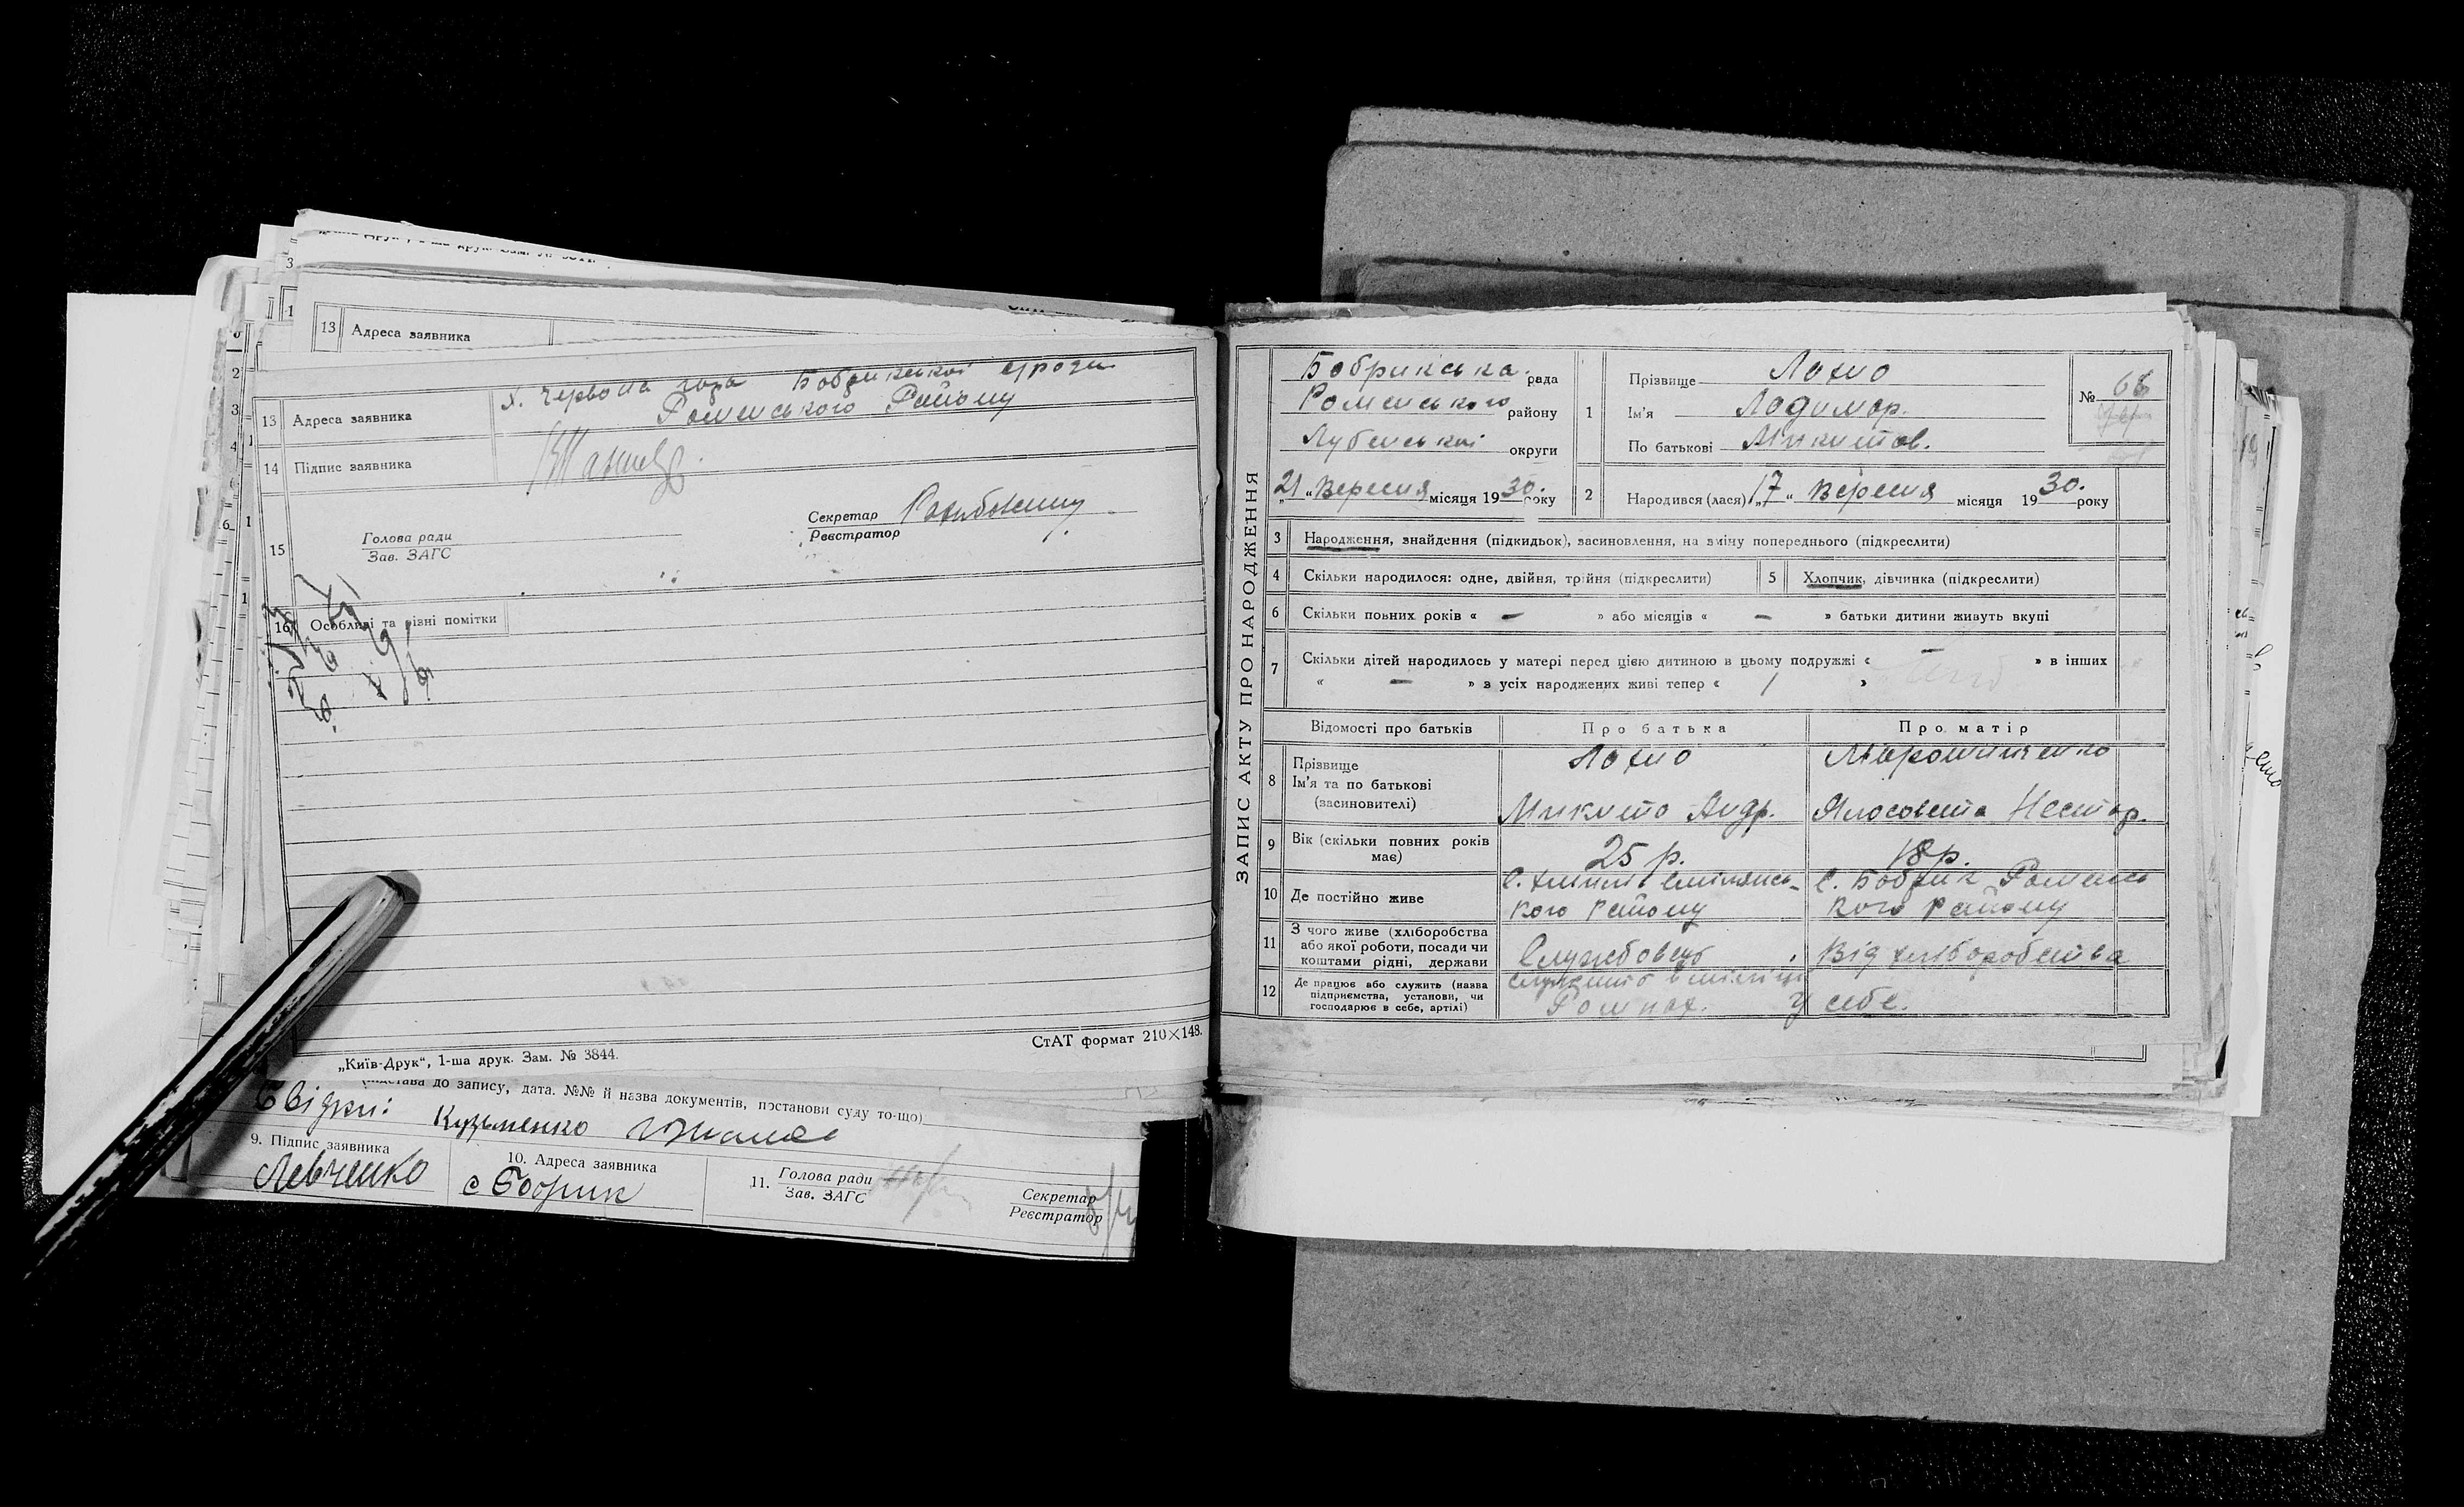 13 Адреса заявника
13 Адреса заявника х. Червона гора Бобрикської с/ради
Роменського Району
14 Підпис заявника
15 Голова ради
Зав. ЗАГС
Секретар
Реєстратор
16 Особливі та різні помітки
„Київ-Друк“, 1-ша друк. Зам. № 3844.
СтАТ формат 210×148.
(підстава до запису, дата. №№ й назва документів, постанови суду то-що)
Свідки: Кузьменко
9. Підпис заявника
Левченко
10. Адреса заявника
с Бобрик
11. Голова ради
Зав. ЗАГС
Секретар
Реєстратор
ЗАПИС АКТУ ПРО НАРОДЖЕННЯ
Бобрикська рада
Роменського району
Лубенської округи
„21“ Вересня місяця 1930 року
1 Прізвище Лохно
Ім'я Лодимар.
По батькові Микитов.
№ 66
2 Народився (лася) „17“ Вересня місяця 1930. року
3 Народження, знайдення (підкидьок), засиновлення, на зміну попереднього (підкреслити)
4 Скільки народилося: одне, двійня, трійня (підкреслити)
5 Хлопчик, дівчинка (підкреслити)
6 Скільки повних років « — » або місяців « — » батьки дитини живуть вкупі
7 Скільки дітей народилось у матері перед цією дитиною в цьому подружжі « — » в інших
« — » з усіх народжених живі тепер « 1 »
Відомості про батьків Про батька Про матір
8 Прізвище Лохно Мирошниченко
Ім'я та по батькові
(засиновителі) Микита Андр. Ялосовета Нестор.
9 Вік (скільки повних років
має) 25 р. 18 р.
10 Де постійно живе с. Хмилів Смілянсь-
кого Району
с. Бобрик Роменсь
кого району
11 З чого живе (хліборобства
або якої роботи, посади чи
коштами рідні, держави
Службовець Від хліборобства
12 Де працює або служить (назва
підприємства, установи, чи
господарює в себе, артілі)
служить в міліції
У себе.